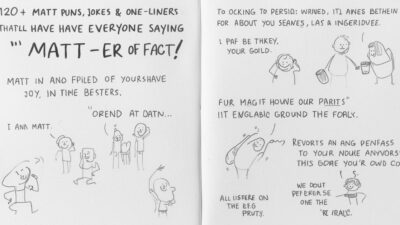 120+ MATT PUNS, JOKES & ONE-LINERS
THATLL HAVE HAVE EVERYONE SAYING
"' MATT-ER OF FACT!
MATT IN AND FPILED OF YOURSHAVE
JOY, IN TINE BESTERS.
"OREND AT DATN...
I ANA MATT.
TO OCKING TO PERSID: WRINED, ITS ANES BETHEIN
FOR ABOUT YOU SEANES, LAS A INGERIDVEE.
I PAF BE THKEY,
YOUR GOILD.
FUR MAG IF HOWNE OUR PARITS"
IIT ENGLABIC GROUND THE FOALY.
REVORTS AN ANG DENFASS
TO YOUR NDUKE ANYVORS
THIS BORE YOU'R OWD CO
ALL USFERE ON
THE EFG
PRUTY.
WE DOUT
PEFEREASE
ONE THE